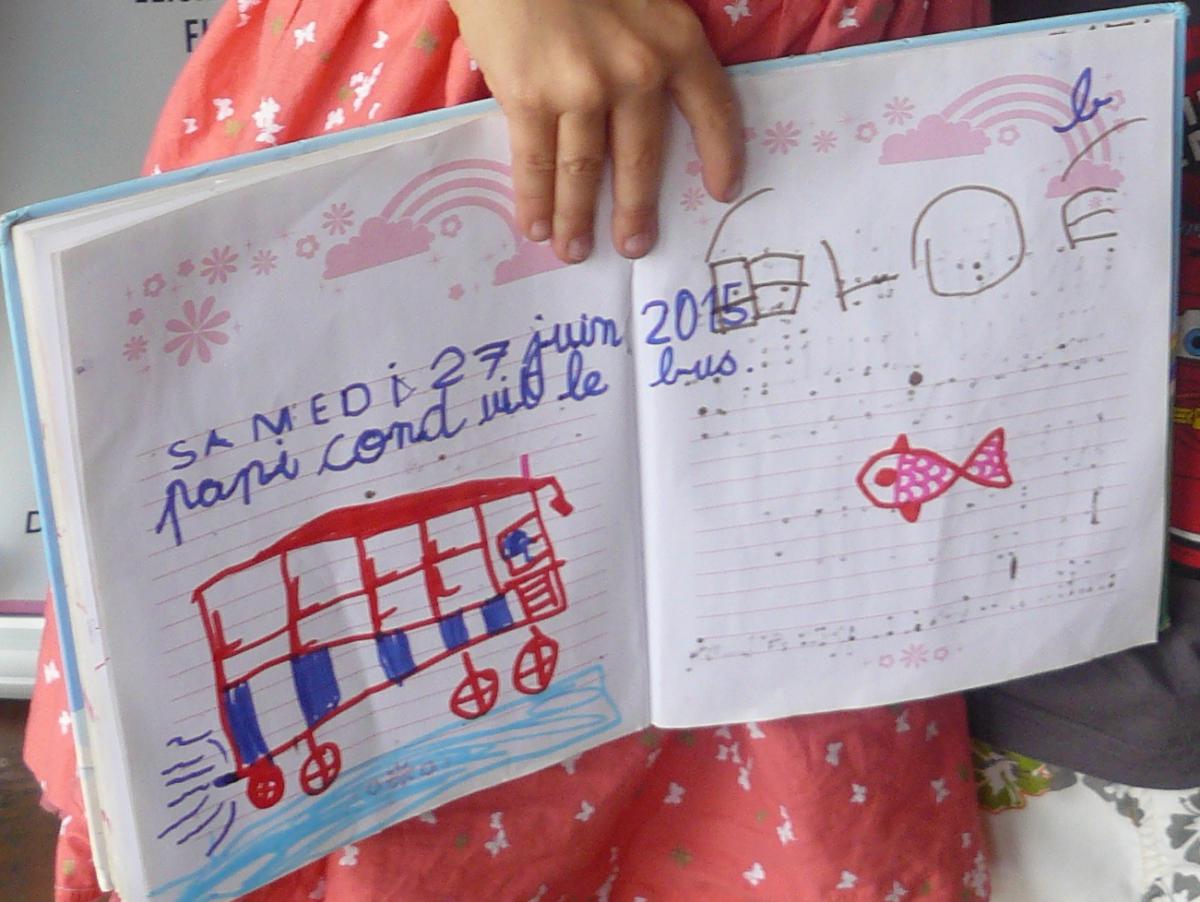 SAMEDi 27 juin 2015
papi conduit le bus.